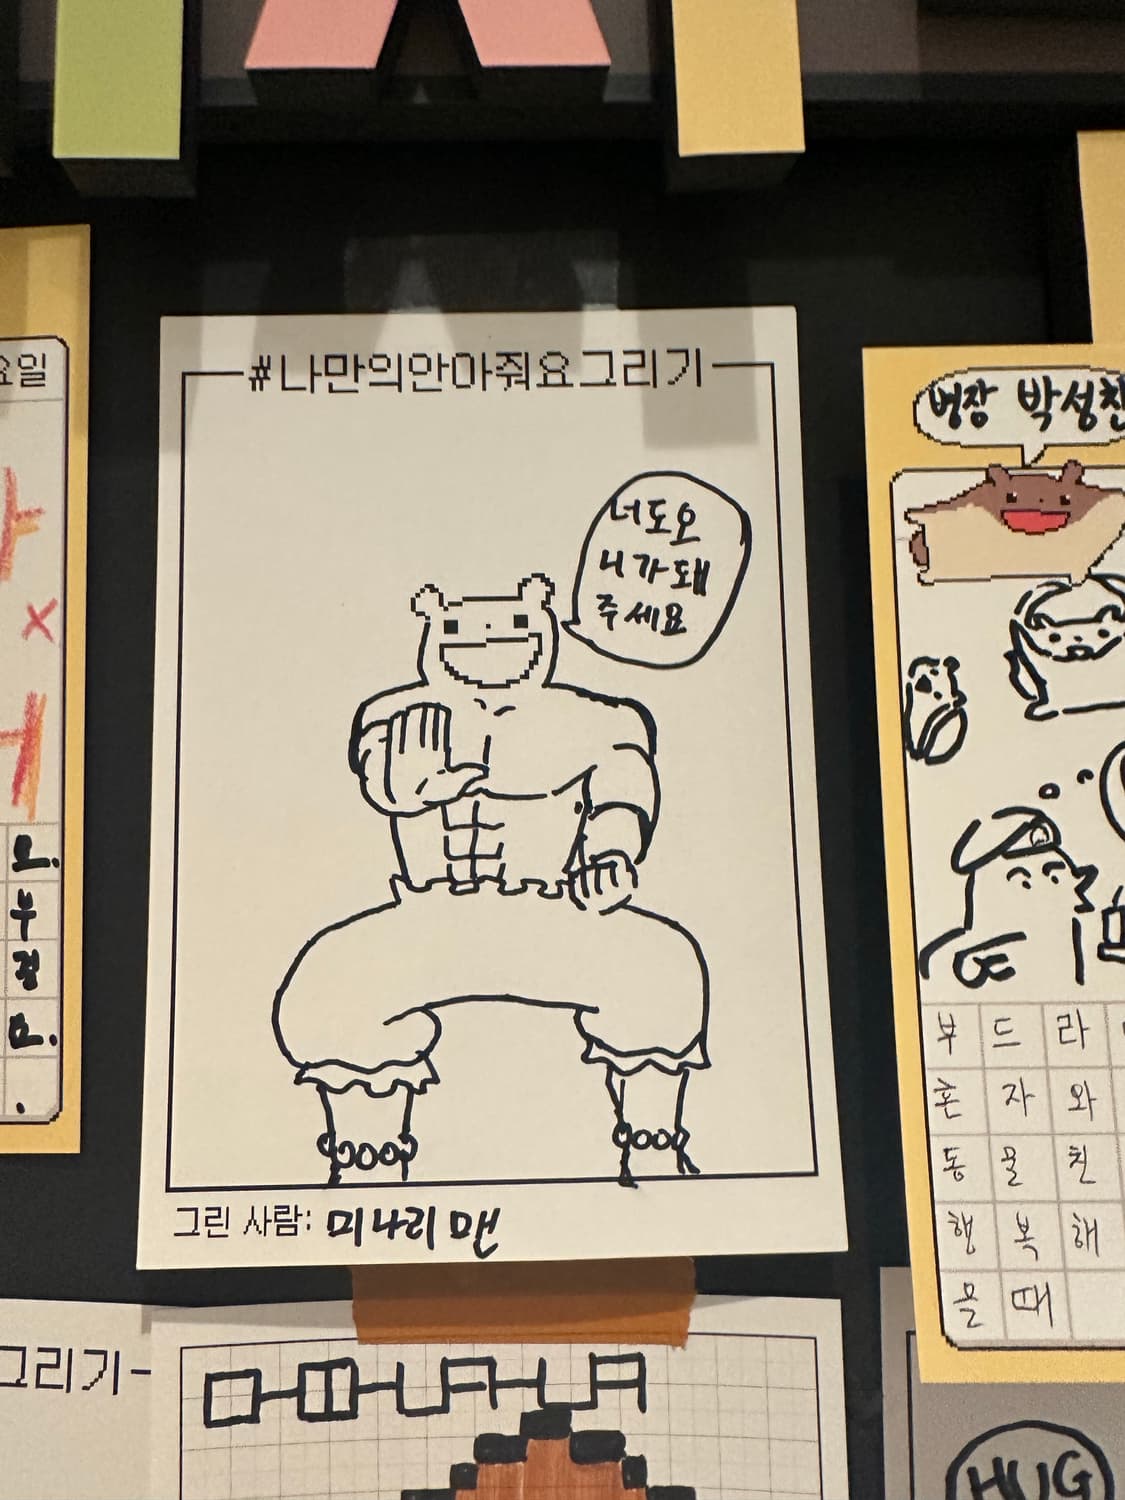 #나만의안아줘요그리기
너도오
니가돼
주세요
그린 사람: 미나리 맨
요일
오.
부
정
요.
.
병장 박성친
부 드 라
혼 자 와
동 물 친
행 복 해
을 때
그리기
HUG